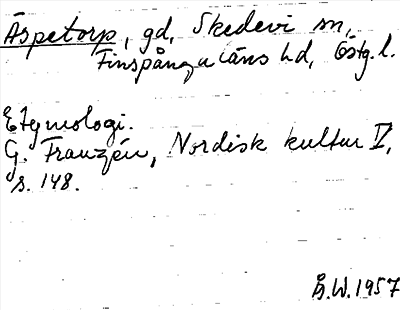 Äspetorp, gd, Skedevi sn,
Finspånga läns hd, Östg.l.
Etymologi.
G. Franzén, Nordisk kultur V,
s. 148.
B.W.1957